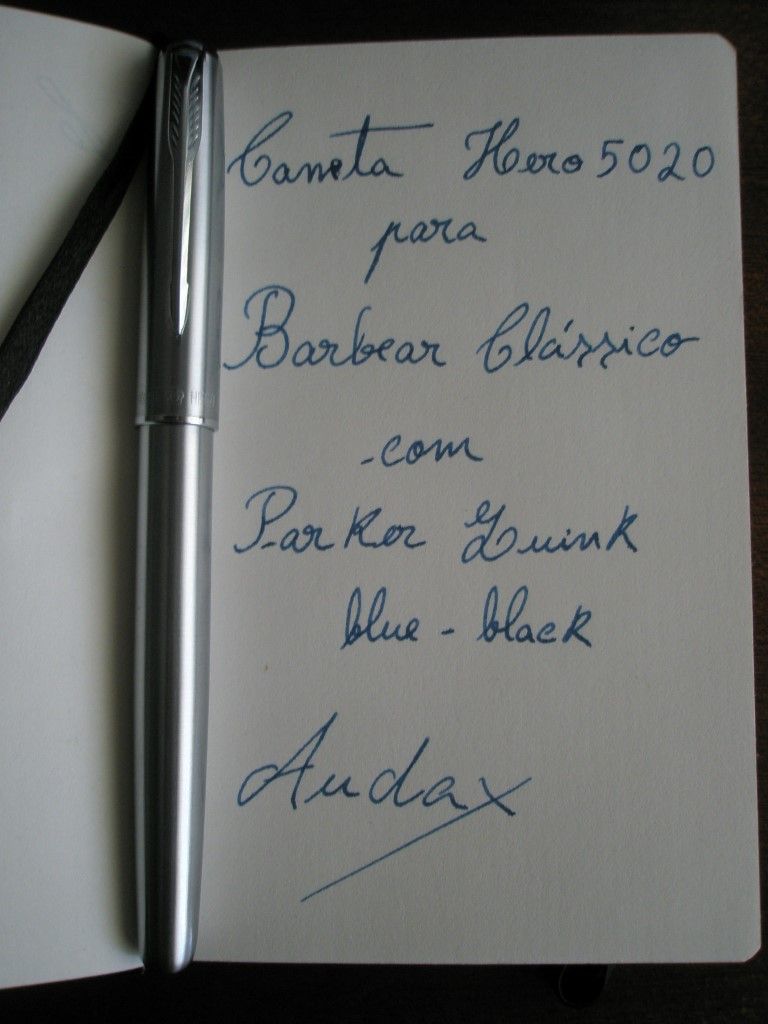 Caneta Hero 5020
para
Barbear Clássico
com
Parker Quink
blue-black
Audax